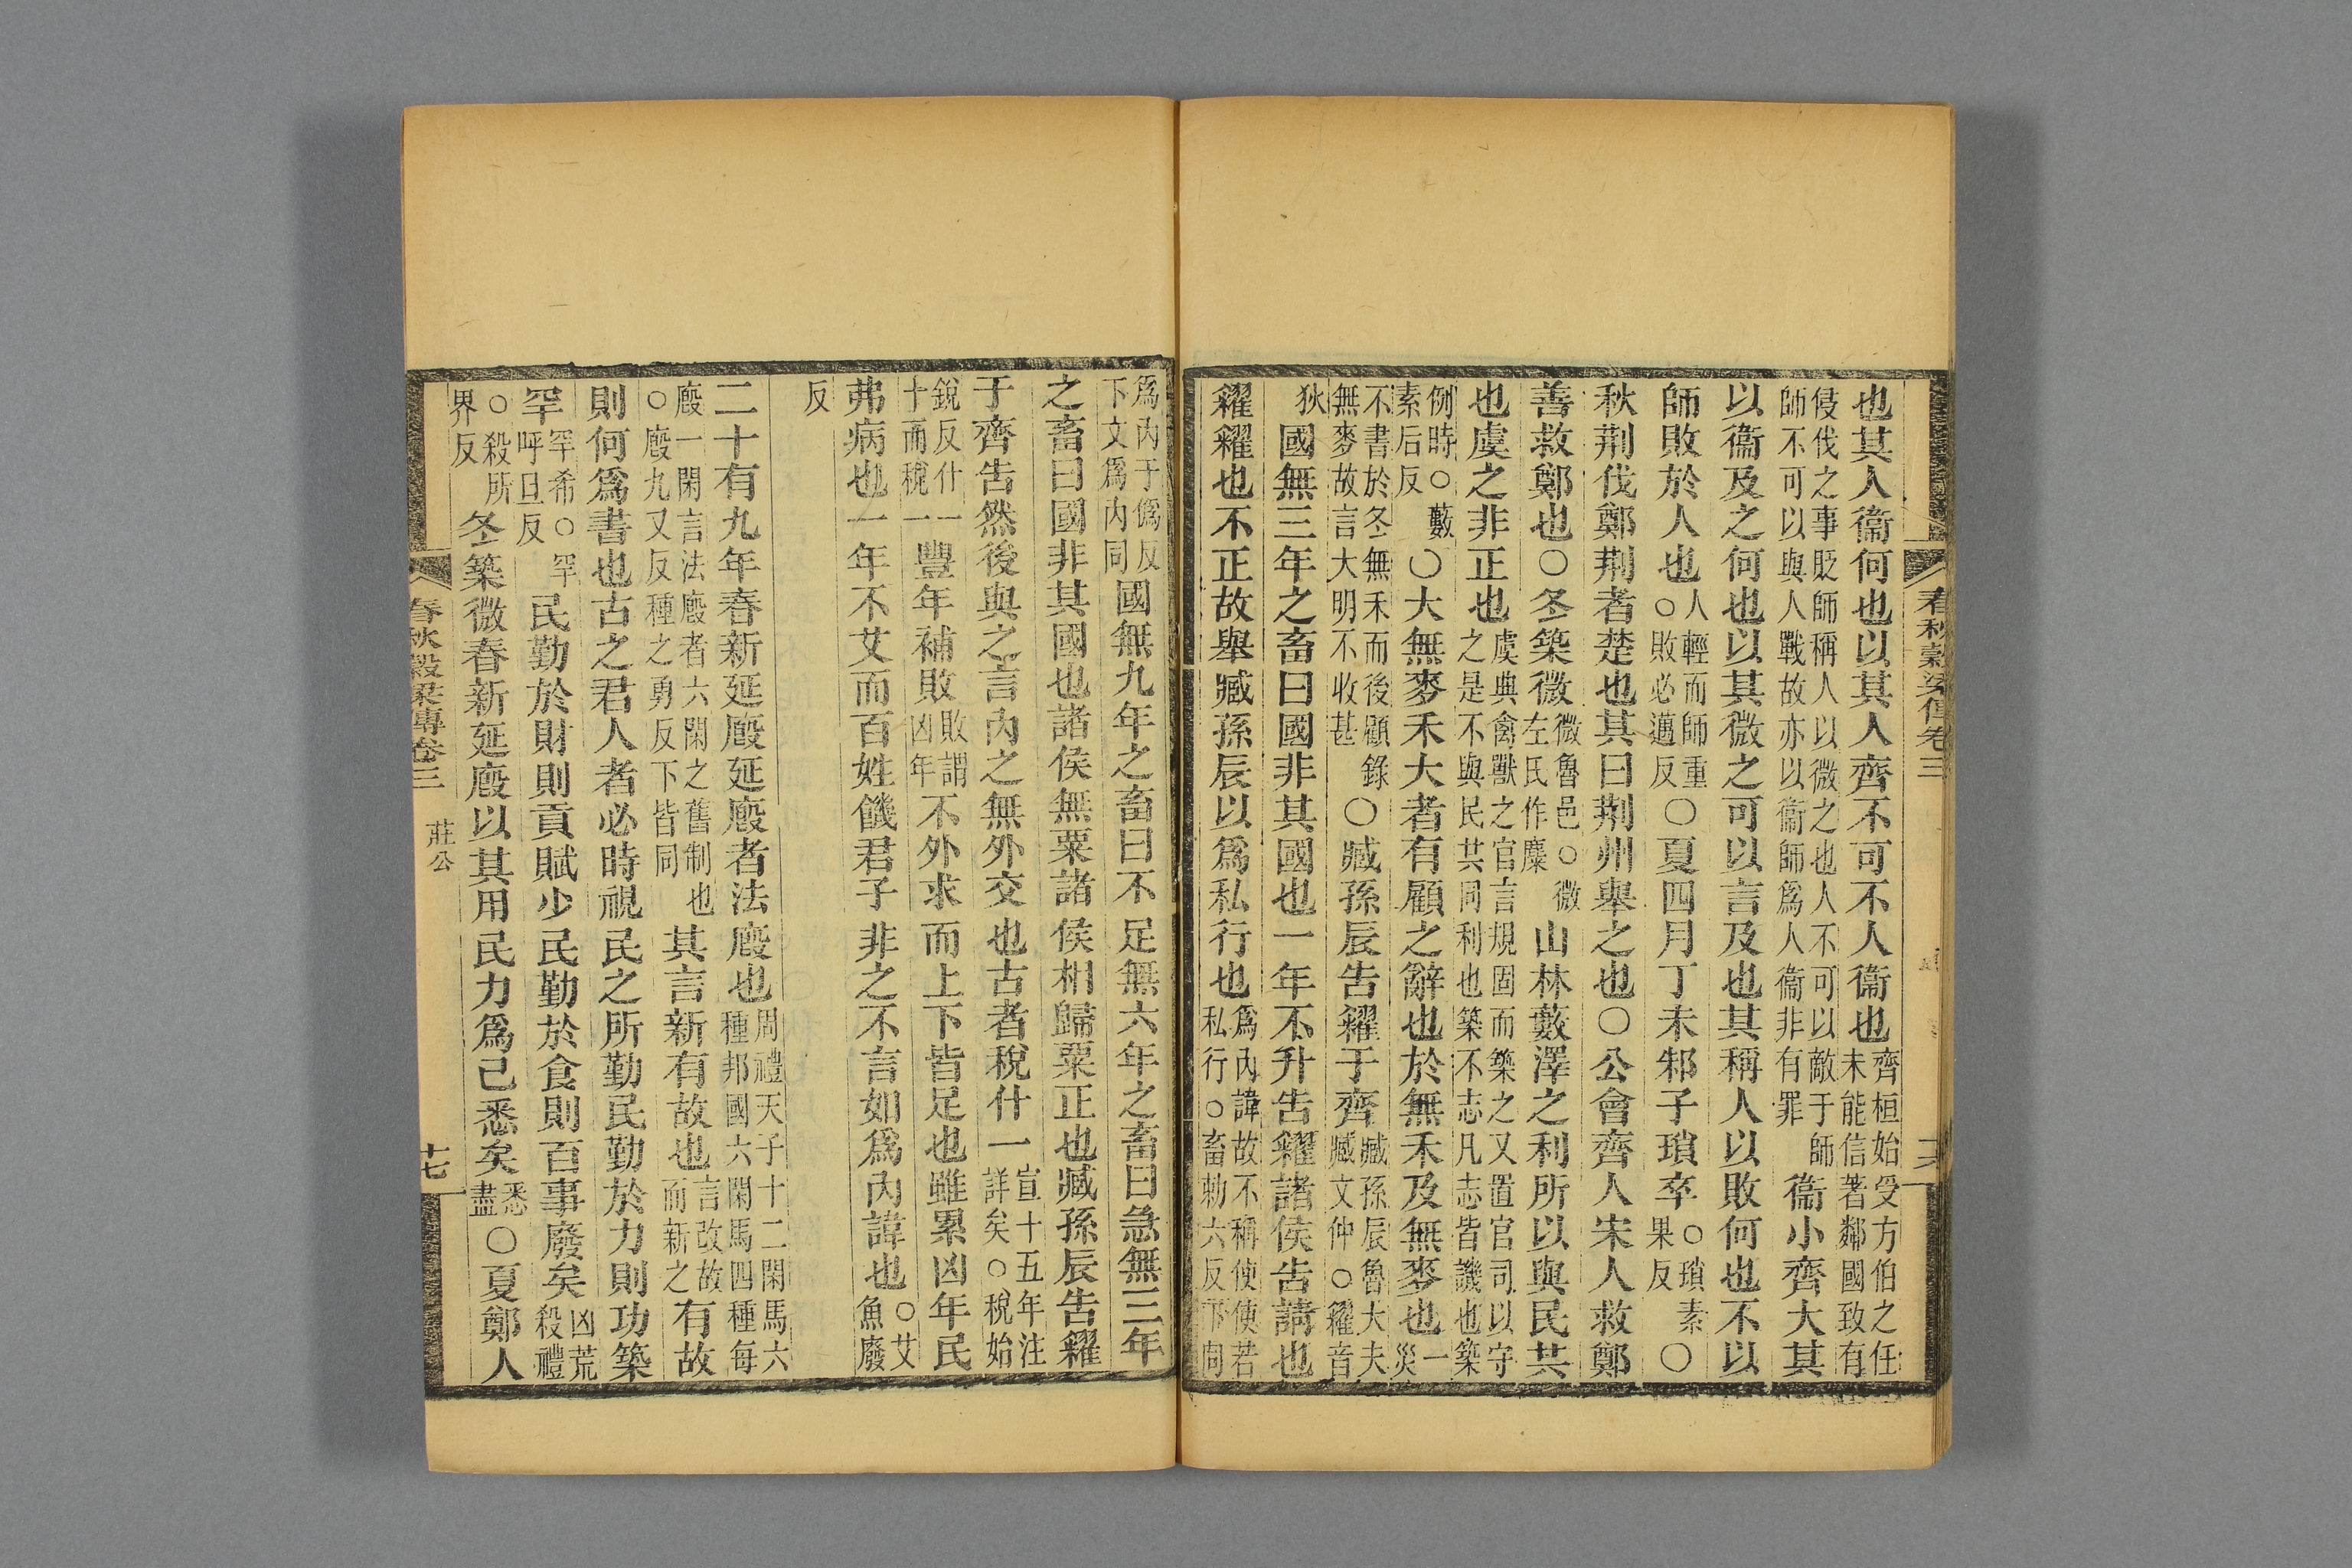 春秋穀梁傳卷三
十六
也其人衞何也以其人齊不可不人衞也齊桓始受方伯之任未能信著鄰國致有
侵伐之事貶師稱人以微之也人不可以敵于師師不可以與人戰故亦以衞師爲人衞非有罪衞小齊大其
以衞及之何也以其微之可以言及也其稱人以敗何也不以
師敗於人也人輕而師重○敗必邁反○夏四月丁未邾子瑣卒○瑣素果反○
秋荆伐鄭荆者楚也其曰荆州舉之也○公會齊人宋人救鄭
善救鄭也○冬築微微魯邑○微左氏作麋山林藪澤之利所以與民共
也虞之非正也虞典禽獸之官言規固而築之又置官司以守之是不與民共同利也築不志凡志皆譏也築
例時○藪素后反○大無麥禾大者有顧之辭也於無禾及無麥也一災
不書於冬無禾而後顧錄無麥故言大明不收甚○臧孫辰告糴于齊臧孫辰魯大夫臧文仲○糴音
狄國無三年之畜曰國非其國也一年不升告糴諸侯告請也
糴糴也不正故舉臧孫辰以爲私行也爲內諱故不稱使使若私行○畜勑六反下同
爲內于僞反下文爲內同國無九年之畜曰不足無六年之畜曰急無三年
之畜曰國非其國也諸侯無粟諸侯相歸粟正也臧孫辰告糴
于齊告然後與之言內之無外交也古者稅什一宣十五年注詳矣○稅始
銳反什一十而稅一豐年補敗敗謂凶年不外求而上下皆足也雖累凶年民
弗病也一年不艾而百姓饑君子非之不言如爲內諱也○艾魚廢
反
二十有九年春新延廄延廄者法廄也周禮天子十二閑馬六種邦國六閑馬四種每
廄一閑言法廄者六閑之舊制也○廄九又反種之勇反下皆同其言新有故也言改故而新之有故
則何爲書也古之君人者必時視民之所勤民勤於力則功築
罕罕希○罕呼旦反民勤於財則貢賦少民勤於食則百事廢矣凶荒殺禮
○殺所界反冬築微春新延廄以其用民力爲已悉矣悉盡○夏鄭人
春秋穀梁傳卷三
莊公
十七